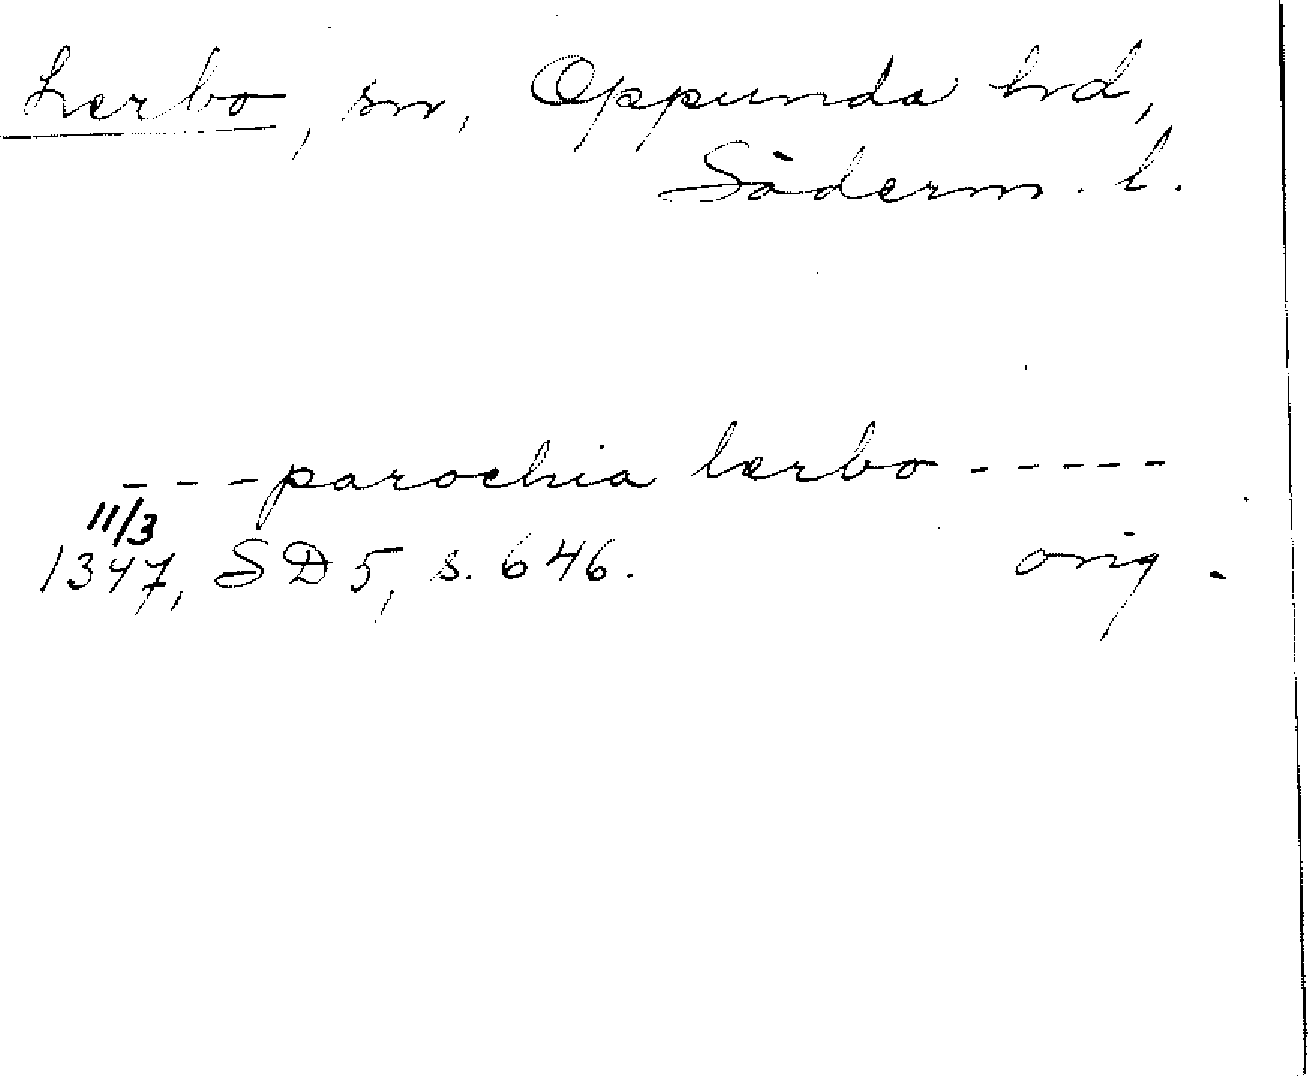 Lerbo, sn, Oppunda hd,
Söderm. l.
---parochia lærbo-----
11/3
1347, SD 5, s. 646. orig.